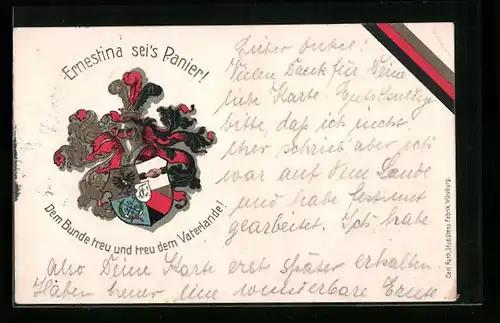 Ernestina sei's Panier!
Dem Bunde treu und treu dem Vaterlande!
Lieber Onkel!
Vielen Dank für Deine
liebe Karte. Entschuldige
bitte, daß ich nicht
eher schrieb aber ich
war auf dem Lande
und habe fest mit
gearbeitet. Ich habe
also Deine Karte erst später erhalten
Haben heuer eine wunderbare Ernte.
Carl Roth, Stud. Utens. Fabrik, Würzburg.